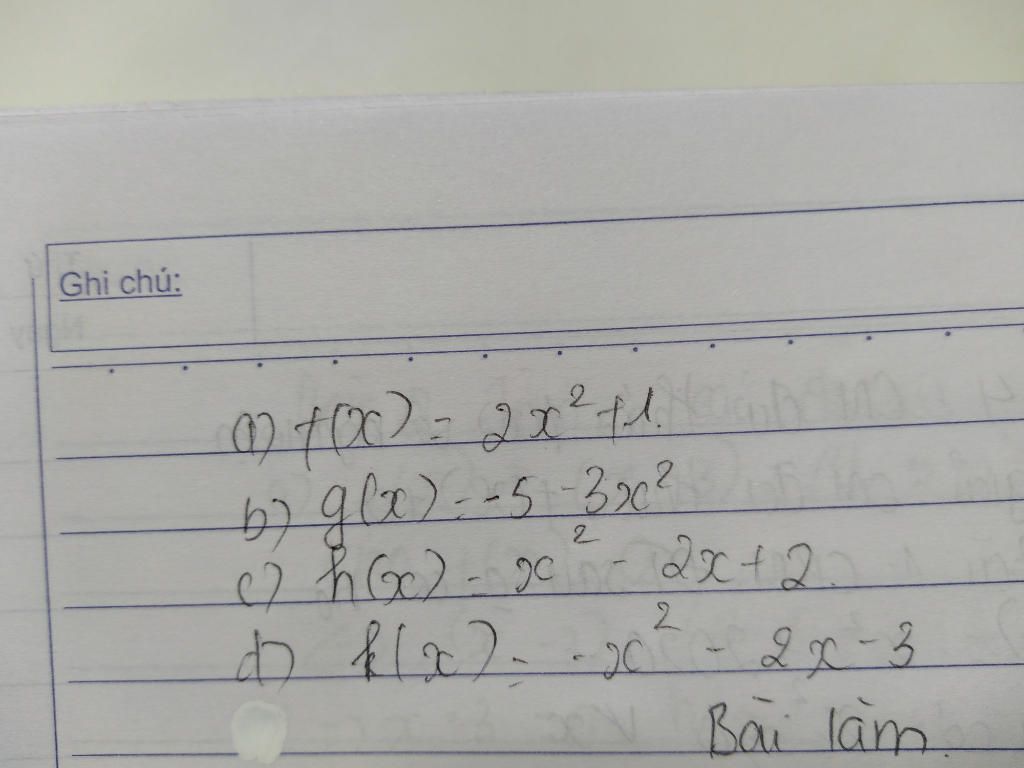 Ghi chú:
a) f(x) = 2x² + 1.
b) g(x) = -5 - 3x²
c) h(x) = x² - 2x + 2.
d) k(x) = -x² - 2x - 3
Bài làm.